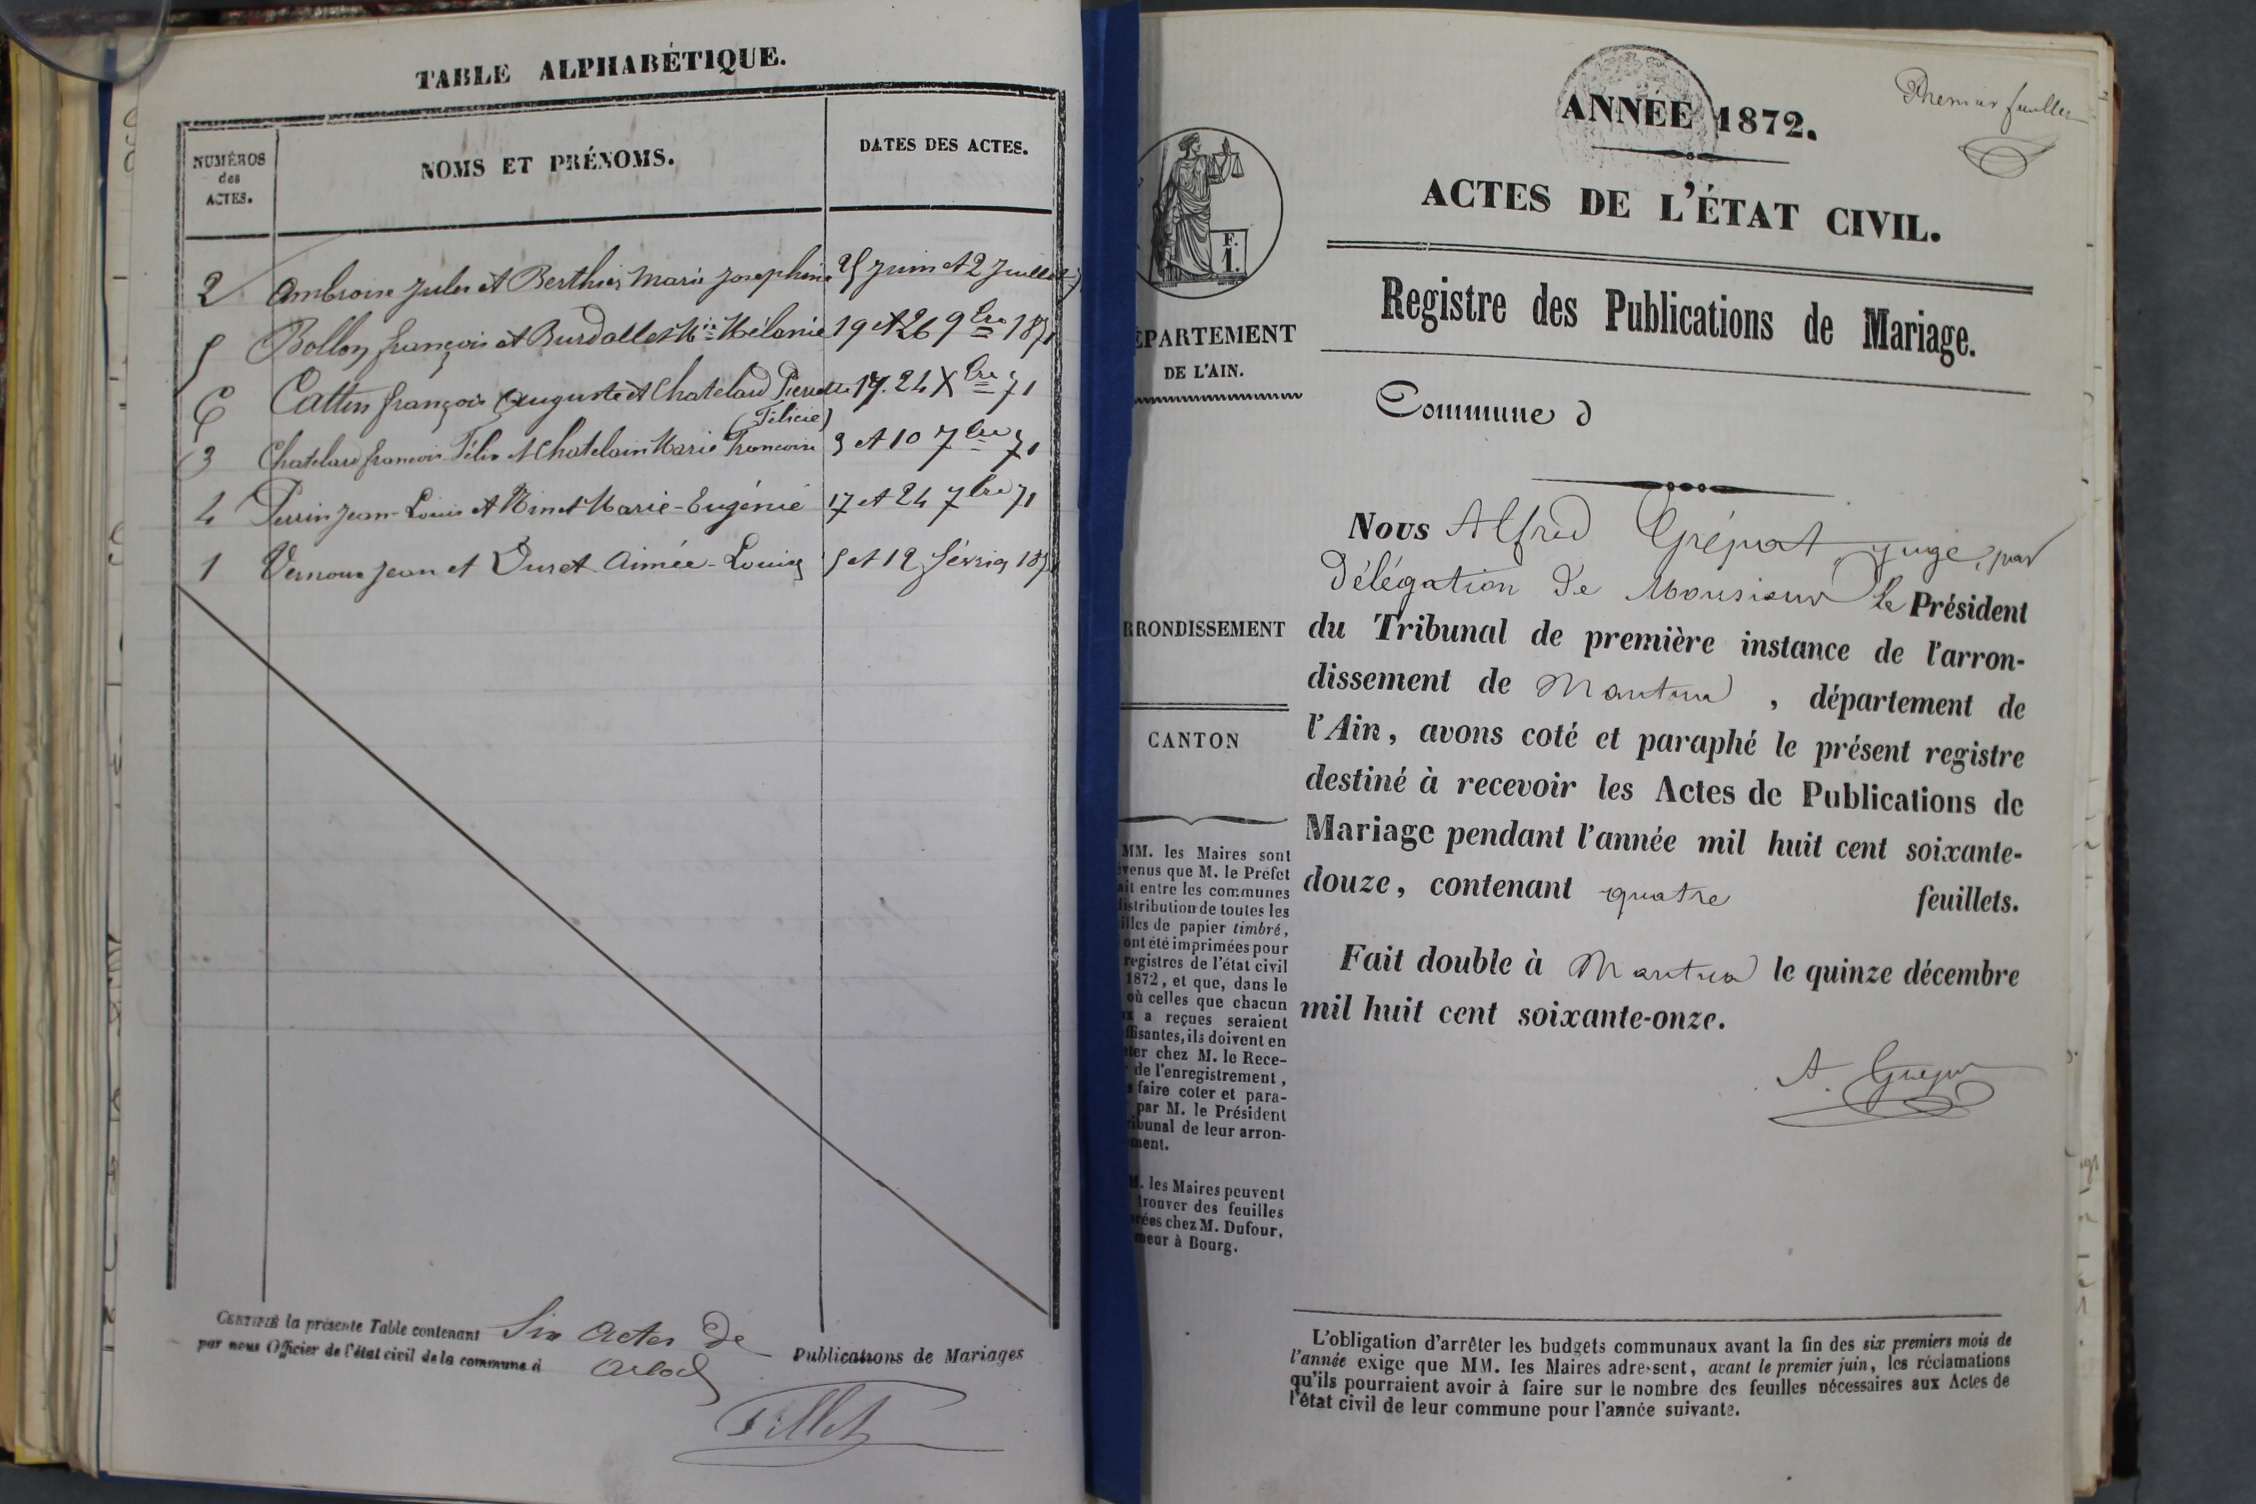 TABLE ALPHABÉTIQUE.
NUMÉROS
des
ACTES.
NOMS ET PRÉNOMS.
DATES DES ACTES.
2 Ambroise Jules et Berthier Marie Josephine 25 Juin et 2 Juillet
5 Bollon françois et Burdallet Mie Mélanie 19 et 26 9bre 1871
6 Cattin françois Auguste et Chatelard Pierrette 17. 24 Xbre 71
(Félicie)
3 Chatelard francois Félix et Chatelain Marie Francoise 3 et 10 7bre 71
4 Perrin Jean-Louis et Marie-Eugénie 17 et 24 7bre 71
1 Vernoux Jean et Duret Aimée-Louise 5 et 12 février 1871
CERTIFIÉ la présente Table contenant Six actes de
Publications de Mariages
par nous Officier de l'état civil de la commune d Arlod
Fillet
Premier feuillet
ANNÉE 1872.
ACTES DE L'ÉTAT CIVIL.
F.
1.
Registre des Publications de Mariage.
ÉPARTEMENT
DE L'AIN.
Commune d
RRONDISSEMENT
CANTON
MM. les Maires sont
évenus que M. le Préfet
ait entre les communes
distribution de toutes les
illes de papier timbré,
ont été imprimées pour
registres de l'état civil
1872, et que, dans le
où celles que chacun
ux a reçues seraient
ffisantes, ils doivent en
eter chez M. le Rece-
r de l'enregistrement,
s faire coter et para-
par M. le Président
ribunal de leur arron-
ment.
M. les Maires peuvent
trouver des feuilles
rées chez M. Dufour,
meur à Bourg.
Nous Alfred Grépat, juge, par
délégation de Monsieur le Président
du Tribunal de première instance de l'arron-
dissement de Nantua, département de
l'Ain, avons coté et paraphé le présent registre
destiné à recevoir les Actes de Publications de
Mariage pendant l'année mil huit cent soixante-
douze, contenant quatre feuillets.
Fait double à Nantua le quinze décembre
mil huit cent soixante-onze.
L'obligation d'arrêter les budgets communaux avant la fin des six premiers mois de
l'année exige que MM. les Maires adressent, avant le premier juin, les réclamations
qu'ils pourraient avoir à faire sur le nombre des feuilles nécessaires aux Actes de
l'état civil de leur commune pour l'année suivante.